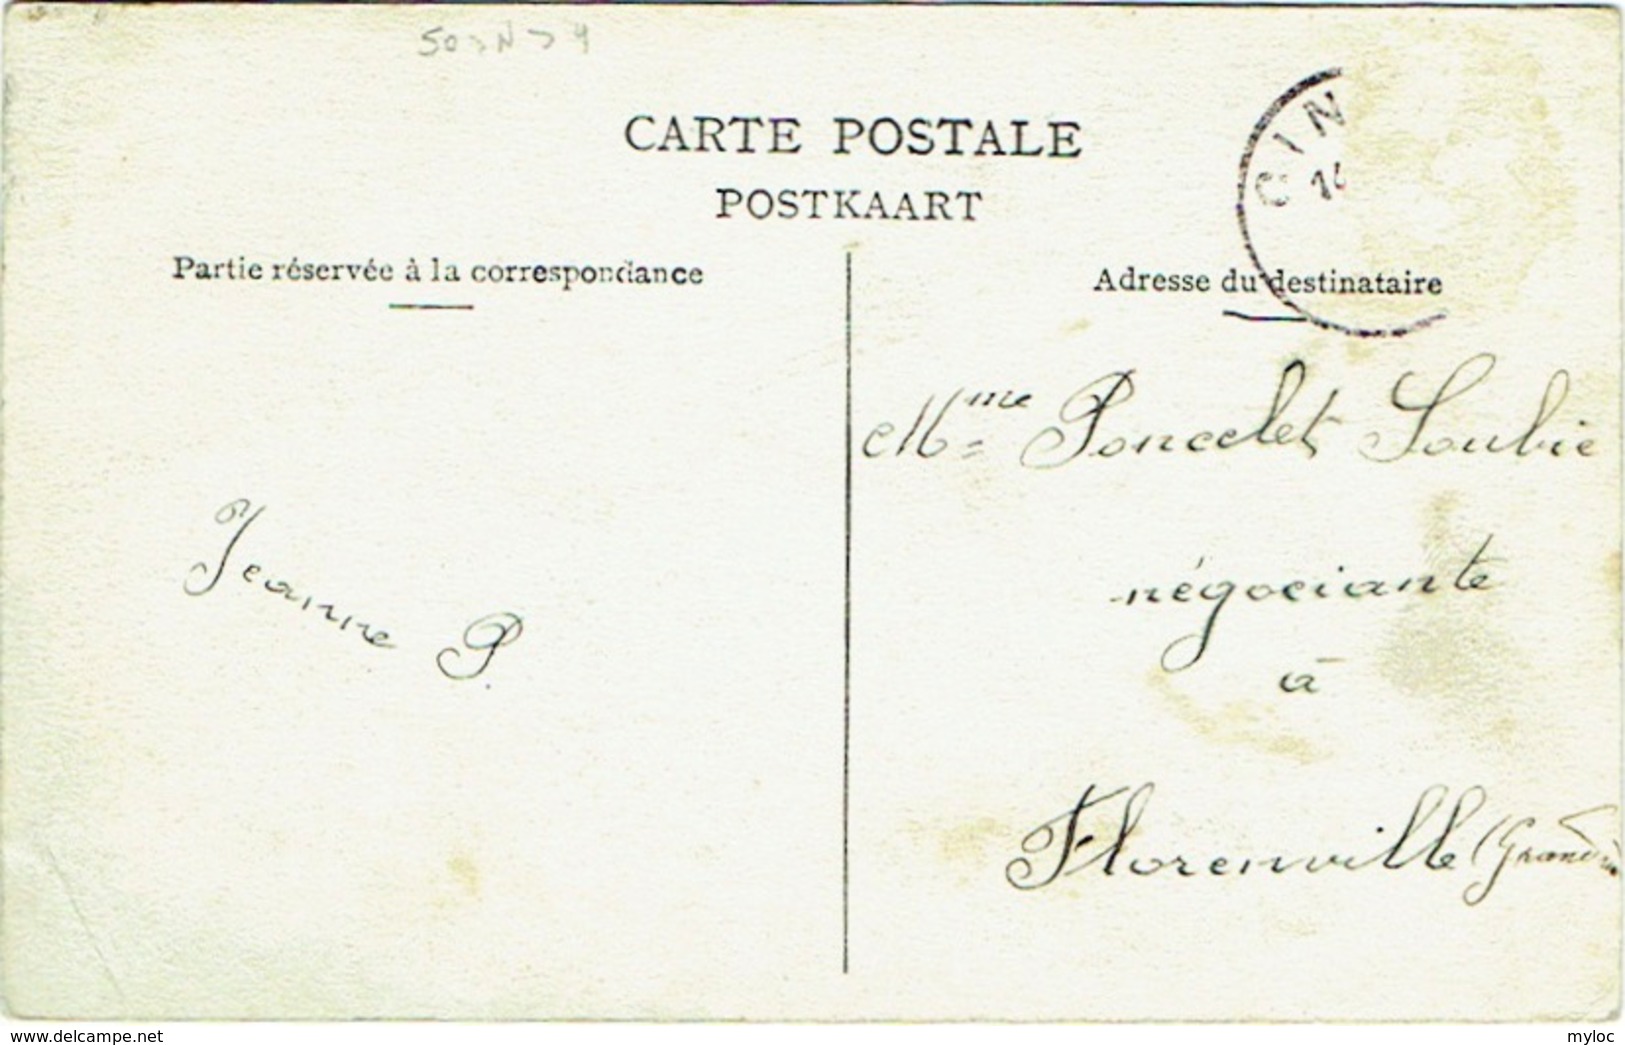 CARTE POSTALE
POSTKAART
CIN
14
Partie réservée à la correspondance
Adresse du destinataire
Mme Poncelet Soubie
négociante
à
Florenville
Jeanne P.
www.delcampe.net
myloc